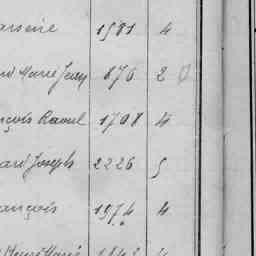 arsene 1981 4
Marie Jean 876 2
nçois Raoul 1708 4
ard Joseph 2226 5
ançois 1974 4